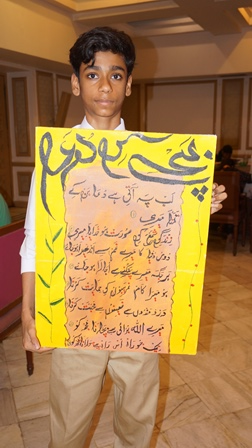 بچے کی دعا
لب پہ آتی ہے دعا بن کے
تمنا میری
زندگی شمع کی
صورت ہو خدایا میری
دور دنیا کا میرے دم سے اندھیرا ہو جائے
ہر جگہ میرے چمکنے سے اجالا ہو جائے
ہو میرا کام غریبوں کی حمایت کرنا
درد مندوں سے ضعیفوں سے محبت کرنا
میرے اللہ برائی سے بچانا مجھ کو
نیک جو راہ ہو اس رہ پہ چلانا مجھ کو